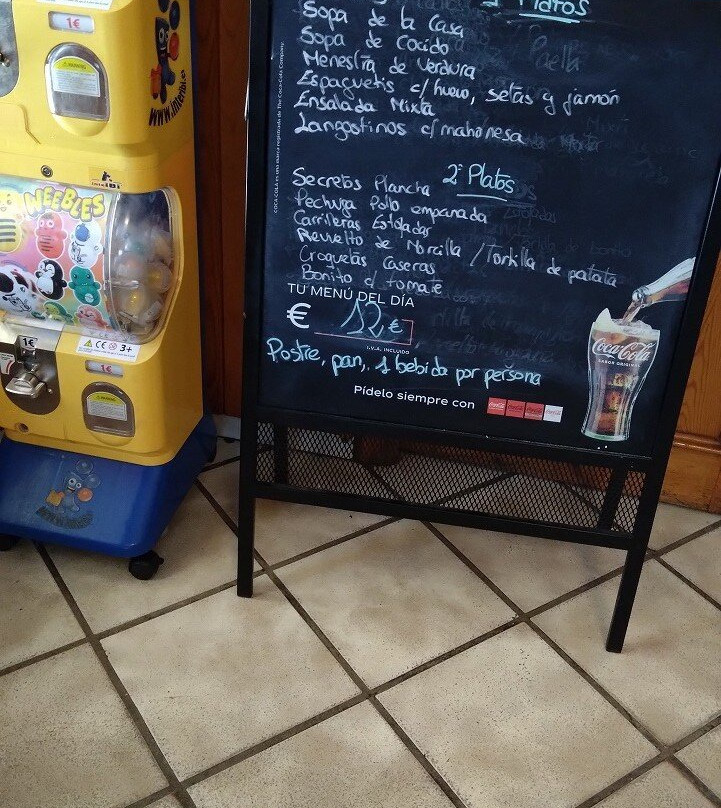 1€
WARNING
www.interibi.es
Platos
Sopa de la Casa
Sopa de Cocido
Menestra de Verdura
Espaguetis c/huevo, setas y jamón
Ensalada Mixta
Langostinos c/mahonesa
Paella
2º Platos
Secretos Plancha
Pechuga Pollo empanada
Carrilleras Estofadas
Revuelto de Morcilla / Tortilla de patata
Croquetas Caseras
Bonito c/ tomate
TU MENÚ DEL DÍA
€ 12€
I.V.A. INCLUIDO
Postre, pan, 1 bebida por persona
Pídelo siempre con
Coca-Cola
SABOR ORIGINAL
COCA-COLA es una marca registrada de The Coca-Cola Company.
WEEBLES
1€
CE 3+
1€
WARNING